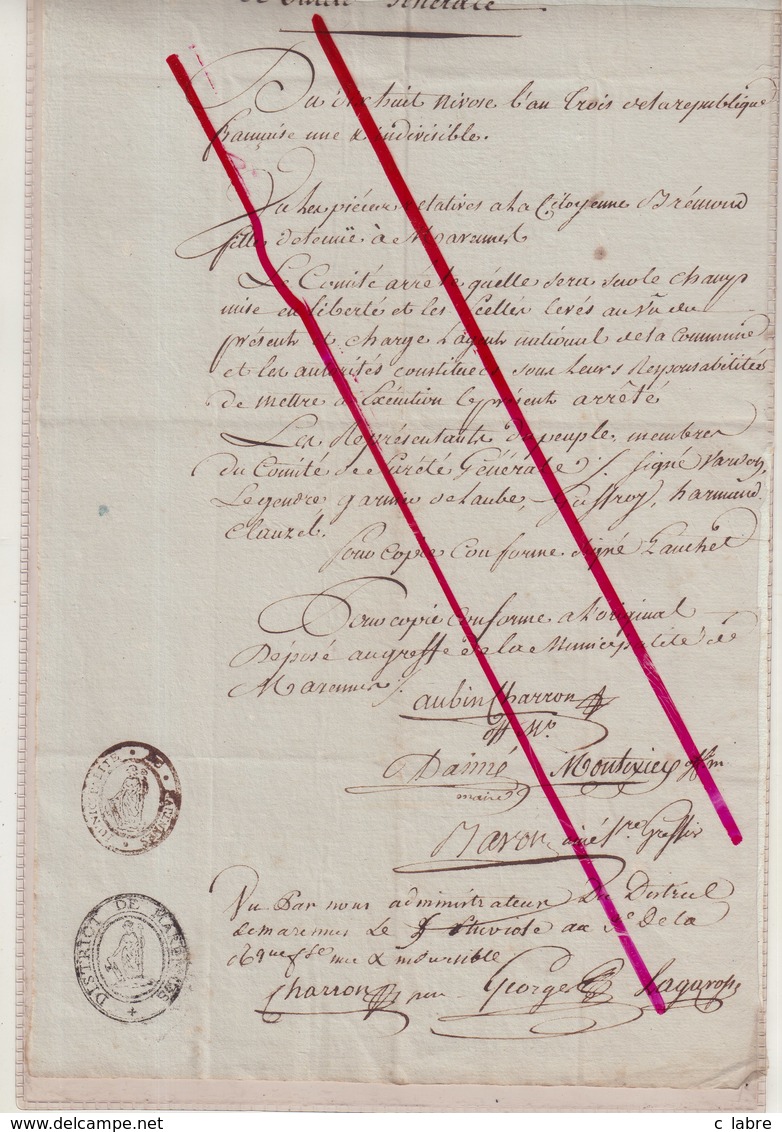 de Sureté Generale
Du dix huit nivose l'an trois de la republique
française une & indivisible.
Vu les pièces relatives a la Citoyenne Brémond
fille detenuë à Marennes
Le Comité arrête quelle sera sur le champ
mise en liberté et les scellés levés au vu du
présent et charge l'agent national de la Commune
et les autorités constituées sous leurs Responsabilités
de mettre à Exécution le présent arrêté
Les Représentants du peuple, membres
du Comité de Sureté Générale /. signé
Legendre, garnier de laube, Guffroy, harmand
Clauzel.
Pour copie Conforme signé
Pour copie Conforme a l'original
Déposé au greffe de la Municipalité de
Marennes /.
aubin Charron
off. Mp.
Daimé
maire
off. m
aîné S.re Greffier
MUNICIPALITE DE
Vu Par nous administrateurs Du District
de marennes Le pluviose an 3e De la
Rque fse une & indivisible
DISTRICT DE MARENNES
Charron
George
c labre